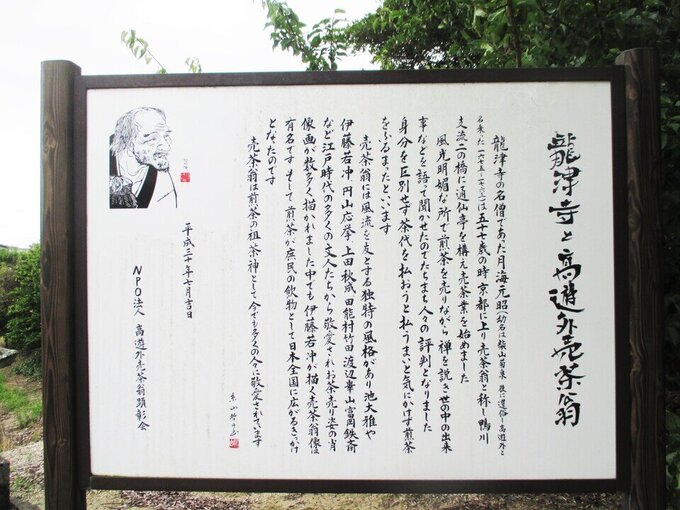 龍津寺と高遊外売茶翁
龍津寺の名僧であった月海元昭(幼名は柴山菊泉 後に還俗し高遊外と
名乗った 一六七五~一七六三)は五十七歳の時京都に上り売茶翁と称し鴨川
支流二の橋に通仙亭を構え売茶業を始めました
風光明媚な所で煎茶を売りながら禅を説き世の中の出来
事などを語って聞かせたのでたちまち人々の評判となりました
身分を区別せず茶代を払おうと払うまいと気にかけず煎茶
をふるまったといいます
売茶翁には風流を友とする独特の風格があり池大雅や
伊藤若冲 円山応挙 上田秋成 田能村竹田 渡辺崋山 富岡鉄斎
など江戸時代の多くの文人たちから敬愛されお茶売り姿の肖
像画が数多く描かれました中でも伊藤若冲が描く売茶翁像は
有名です そして煎茶が庶民の飲物として日本全国に広がるきっかけ
となったのです
売茶翁は煎茶の祖茶神として今でも多くの人々に敬愛されています
平成三十年七月吉日
NPO法人 高遊外売茶翁顕彰会